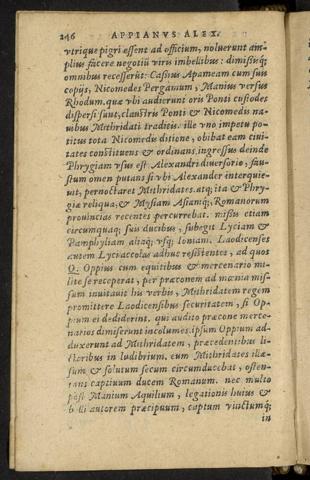 246 APPIANVS ALEX.
vtrique pigri essent ad officium, noluerunt am-
plius facere negotiū viris imbellibus: dimissisq́;
omnibus recesserūt: Cassius Apameam cum suis
copijs, Nicomedes Pergamum, Manius versus
Rhodum. quæ vbi audierunt oris Ponti custodes
dispersi sunt, claustris Ponti & Nicomedis na-
uibus Mithridati traditis. ille vno impetu po-
titus tota Nicomedis ditione, obibat eam ciui-
tates constituens & ordinans. ingressus deinde
Phrygiam vsus est Alexandri diuersorio, fau-
stum omen putans si vbi Alexander interquie-
uit, pernoctaret Mithridates. atq; ita & Phry-
giæ reliqua, & Mysiam Asiamq́;, Romanorum
prouincias recentes percurrebat. missis etiam
circumquaq; suis ducibus, subegit Lyciam &
Pamphyliam aliaq; vsq; Ioniam. Laodicenses
autem Lyciaccolas adhuc resistentes, ad quos
Q. Oppius cum equitibus & mercenario mi-
lite se receperat, per præconem ad mœnia mis-
sum inuitauit his verbis, Mithridatem regem
promittere Laodicensibus securitatem, si Op-
pium ei dediderint. qui audito præcone merce-
narios dimiserunt incolumes. ipsum Oppium ad-
duxerunt ad Mithridatem, præcedentibus li-
ctoribus in ludibrium. eum Mithridates illæ-
sum & solutum secum circumducebat, osten-
tans captiuum ducem Romanum. nec multo
post Manium Aquilium, legationis huius &
belli autorem præcipuum, captum vinctumq́;
in